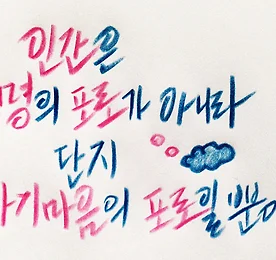 인간은
명의 포로가 아니라
단지
자기마음의 포로일 뿐